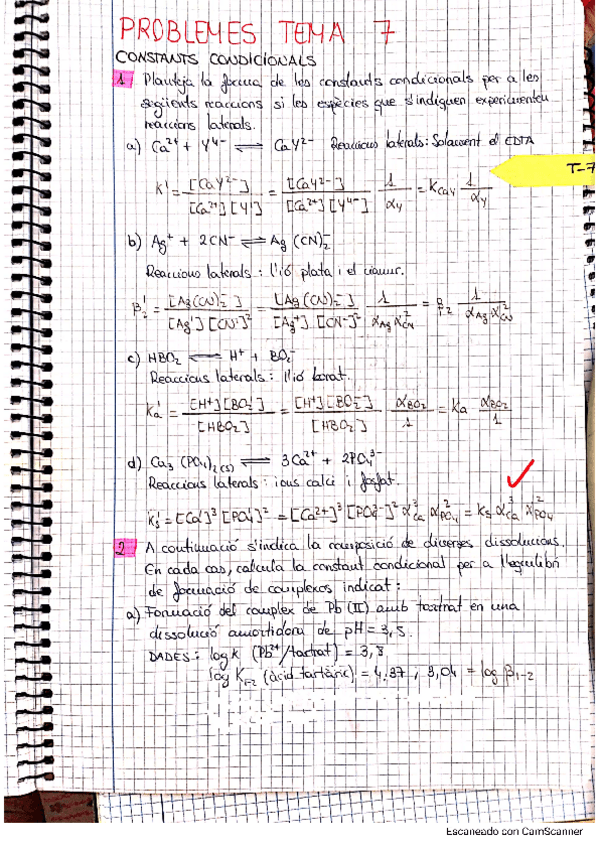 PROBLEMES TEMA 7
CONSTANTS CONDICIONALS
1 Planteja la fórmula de les constants condicionals per a les
següents reaccions si les espècies que s'indiquen experimenten
reaccions laterals.
a) Ca²⁺ + Y⁴⁻ ⇌ CaY²⁻ Reaccions laterals: Solament el EDTA
T-7
K' = [CaY²⁻] / [Ca²⁺][Y'] = [CaY²⁻] / [Ca²⁺][Y⁴⁻] · 1/αY = KCaY 1/αY
b) Ag⁺ + 2CN⁻ ⇌ Ag(CN)₂⁻
Reaccions laterals: l'ió plata i el cianur.
β₂' = [Ag(CN)₂⁻] / [Ag'][CN']² = [Ag(CN)₂⁻] / [Ag⁺][CN⁻]² · 1/αAg αCN² = β₂ 1/αAg αCN²
c) HBO₂ ⇌ H⁺ + BO₂⁻
Reaccions laterals: l'ió borat.
Ka' = [H⁺][BO₂'] / [HBO₂] = [H⁺][BO₂⁻] / [HBO₂] · αBO₂/1 = Ka αBO₂/1
d) Ca₃(PO₄)₂(s) ⇌ 3Ca²⁺ + 2PO₄³⁻
Reaccions laterals: ions calci i fosfat.
Ks' = [Ca']³ [PO₄']² = [Ca²⁺]³ [PO₄³⁻]² αCa³ αPO₄² = Ks αCa³ αPO₄²
2 A continuació s'indica la composició de diverses dissolucions.
En cada cas, calcula la constant condicional per a l'equilibri
de formació de complexos indicat:
a) Formació del complex de Pb(II) amb tartrat en una
dissolució amortidora de pH = 3,5.
DADES: log K (Pb²⁺/tartrat) = 3,8
log K₁₋₂ (àcid tartàric) = 4.37, 3,04 = log β₁₋₂
Escaneado con CamScanner